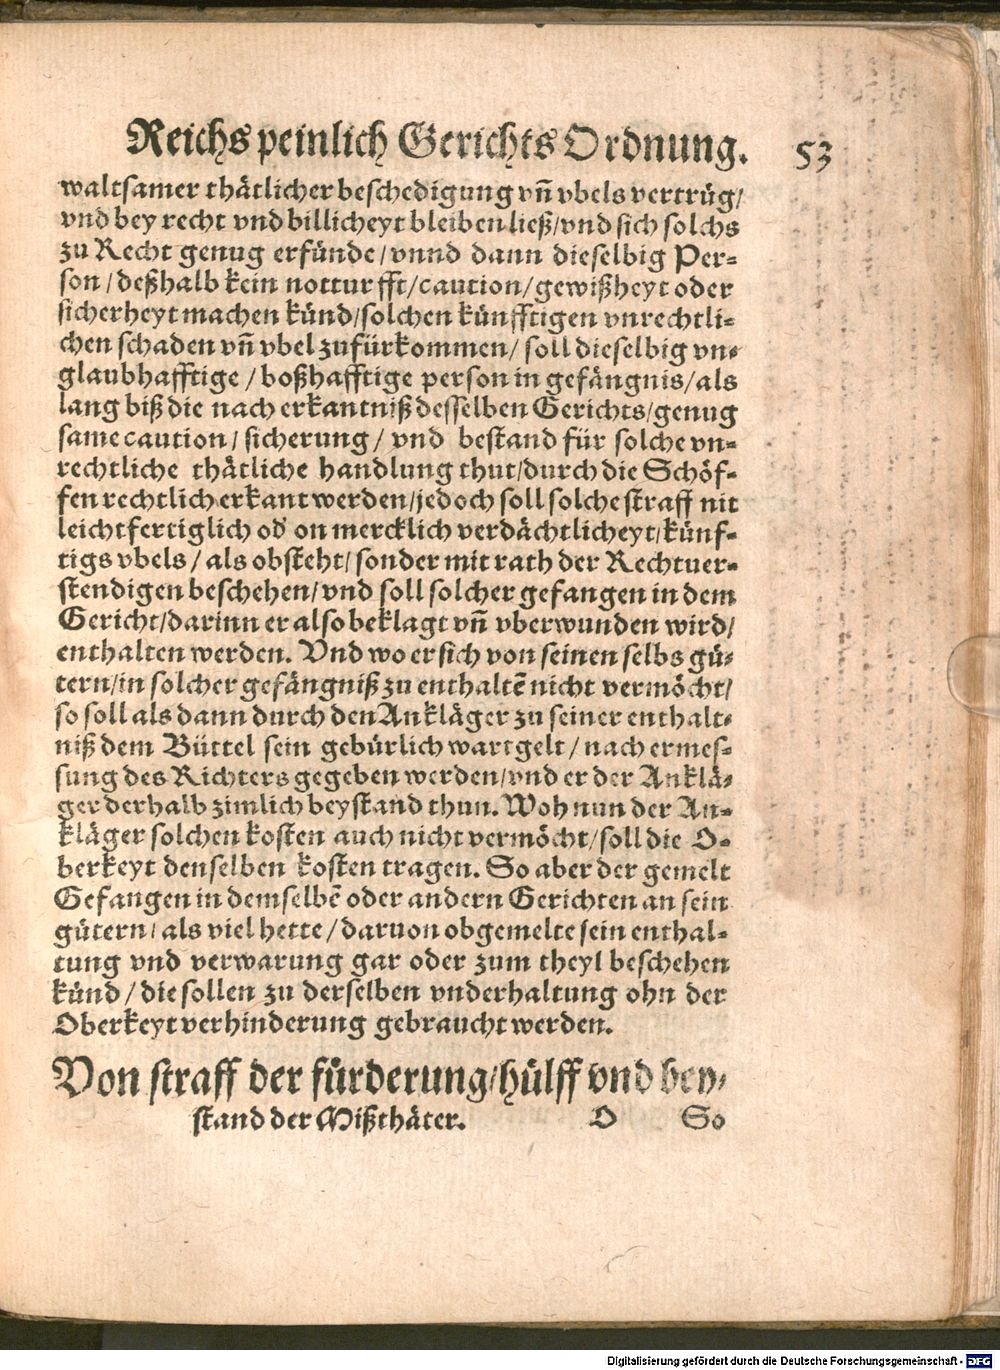 Reichs peinlich Gerichts Ordnung. 53
waltsamer thätlicher beschedigung vñ vbels vertrüg/
vnd bey recht vnd billicheyt bleiben ließ/vnd sich solchs
zu Recht genug erfünde/vnnd dann dieselbig Per-
son/deßhalb kein notturfft/caution/gewißheyt oder
sicherheyt machen künd/solchen künfftigen vnrechtli-
chen schaden vñ vbel zufürkommen/soll dieselbig vn-
glaubhafftige/boßhafftige person in gefängnis/als
lang biß die nach erkantniß desselben Gerichts/genug
same caution/sicherung/vnd bestand für solche vn-
rechtliche thätliche handlung thut/durch die Schöf-
fen rechtlich erkant werden/jedoch soll solche straff nit
leichtfertiglich od' on mercklich verdächtlicheyt/künf-
tigs vbels/als obsteht/sonder mit rath der Rechtuer-
stendigen beschehen/vnd soll solcher gefangen in dem
Gericht/darinn er also beklagt vñ vberwunden wird/
enthalten werden. Vnd wo er sich von seinen selbs gü-
tern/in solcher gefängniß zu enthaltẽ nicht vermöcht/
so soll als dann durch den Ankläger zu seiner enthalt-
niß dem Büttel sein gebürlich wartgelt/nach ermes-
sung des Richters gegeben werden/vnd er der Anklä-
ger derhalb zimlich beystand thun. Woh nun der An-
kläger solchen kosten auch nicht vermöcht/soll die O-
berkeyt denselben kosten tragen. So aber der gemelt
Gefangen in demselbẽ oder andern Gerichten an sein
gütern/als viel hette/daruon obgemelte sein enthal-
tung vnd verwarung gar oder zum theyl beschehen
künd/die sollen zu derselben vnderhaltung ohn der
Oberkeyt verhinderung gebraucht werden.
Von straff der fürderung/hülff vnd bey-
stand der Mißthäter. O So
Digitalisierung gefördert durch die Deutsche Forschungsgemeinschaft - DFG